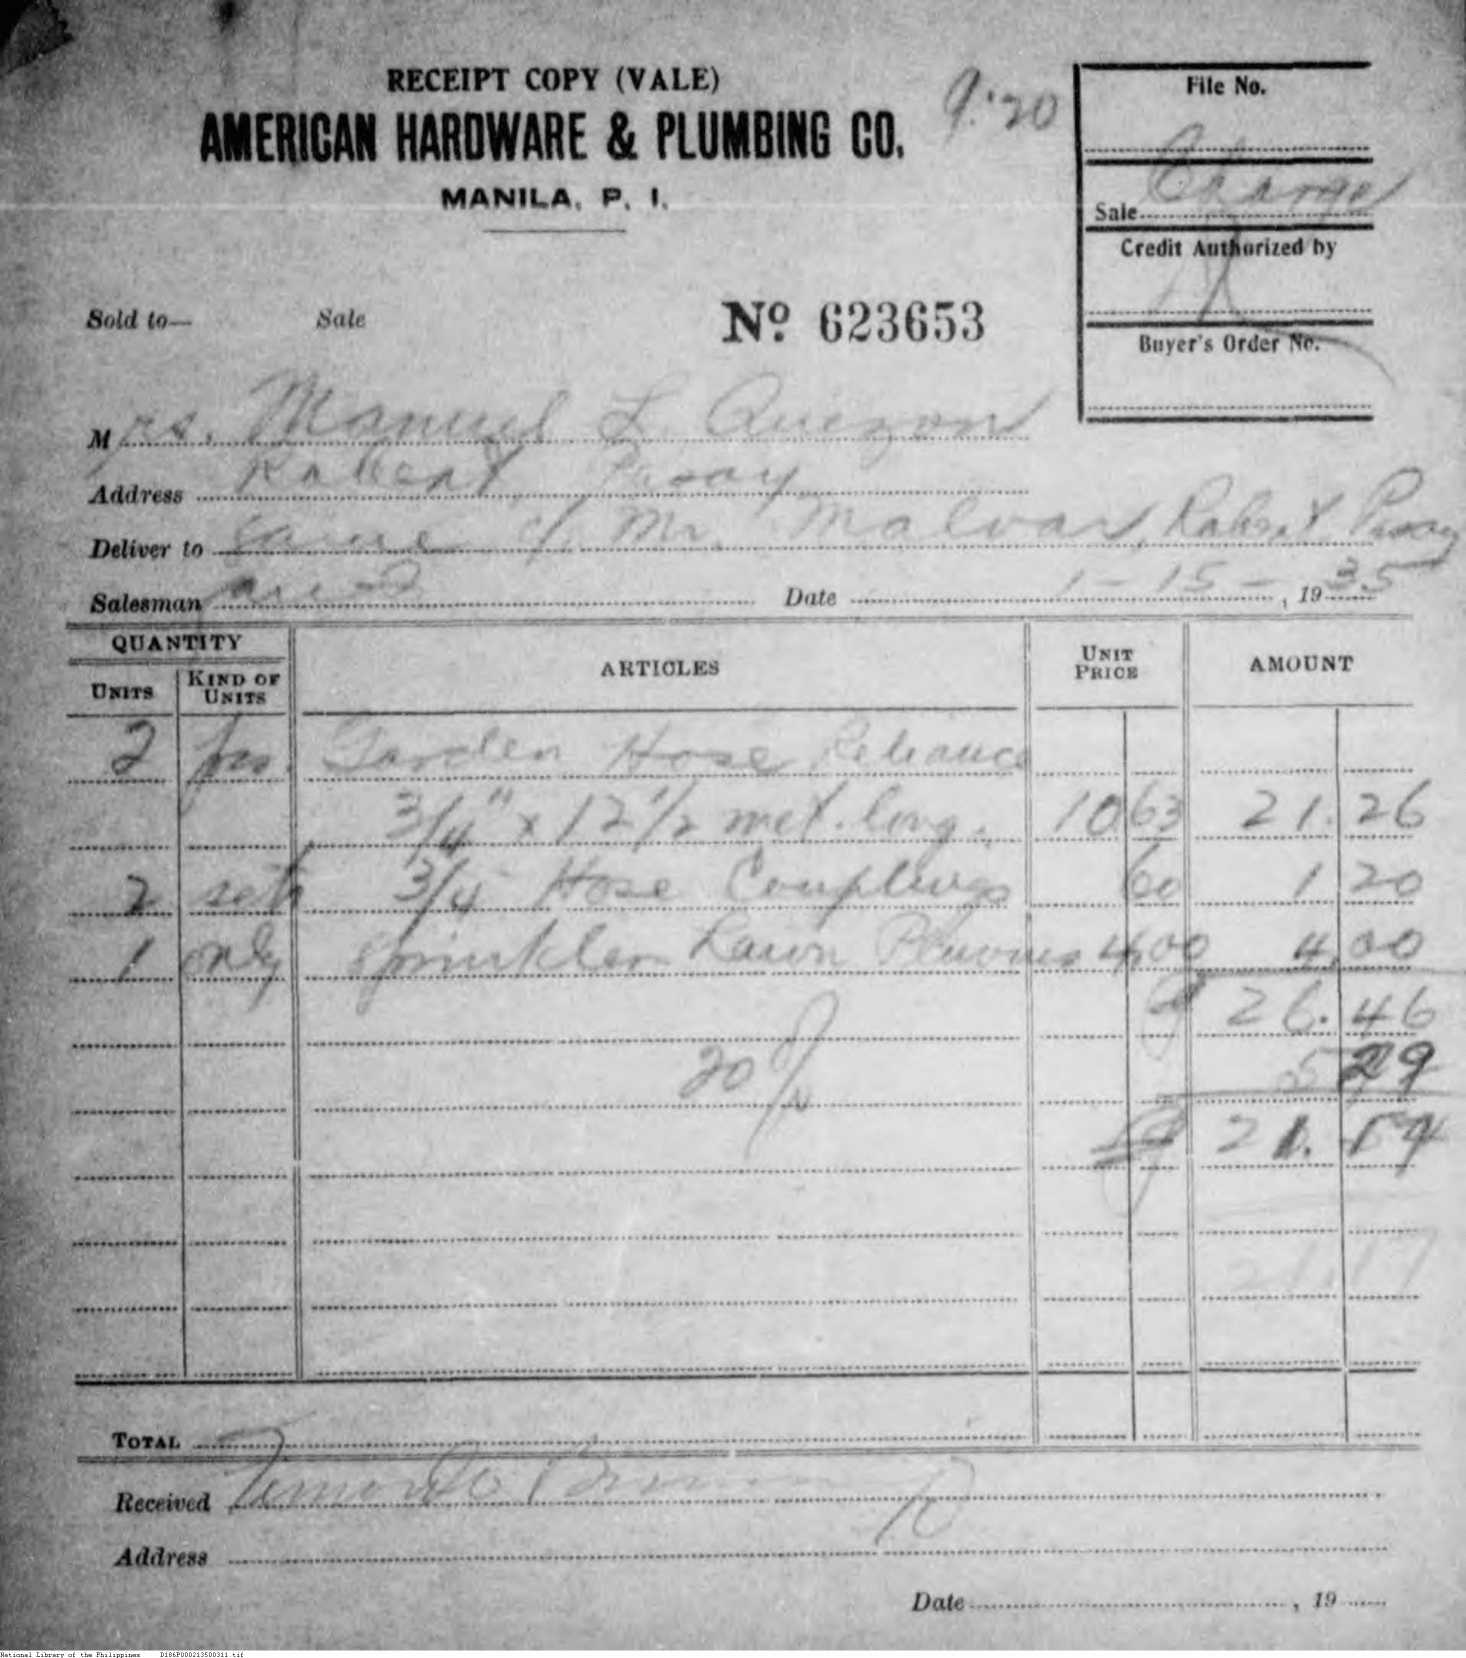 RECEIPT COPY (VALE)
AMERICAN HARDWARE & PLUMBING CO.
MANILA, P. I.
9:20
File No.
Sale Charge
Credit Authorized by
Buyer's Order No.
Sold to— Sale
No. 623653
Mrs. Manuel L Quezon
Address Pasay
Deliver to same c/. Mr. Malvar, Pasay
Salesman
Date 1-15-, 1935
QUANTITY ARTICLES UNIT PRICE AMOUNT
UNITS KIND OF UNITS
2 pcs. Garden Hose Reliance
3/4" x 12 1/2 met. long. 10 63 21. 26
2 sets 3/4 Hose Couplings 60 1 20
1 only Sprinkler Lawn Pluvius 4.00 4.00
26.46
20% 5 29
21.17
21.17
TOTAL
Received
Address
Date , 19
National Library of the Philippines D186P000213500311.tif